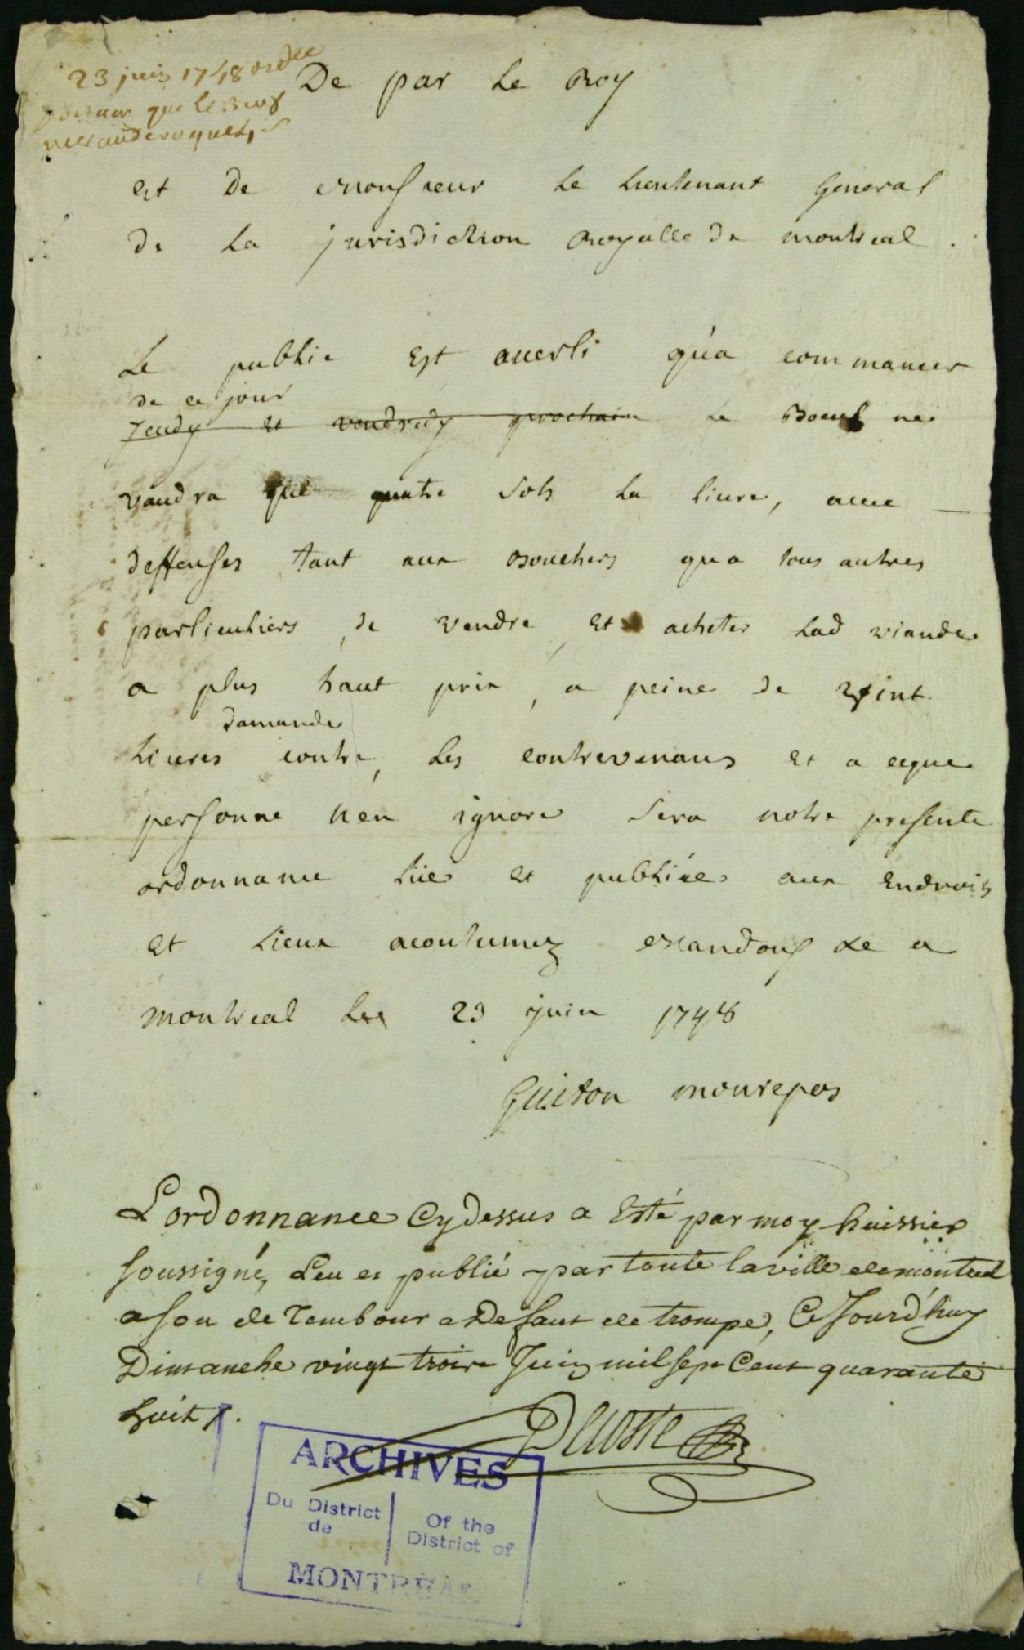 23 juin 1748 ordce
que le Bœuf
ne vaudra que 4 s
De par Le Roy
Et De Monsieur Le Lieutenant General
de La jurisdiction Royalle de montreal.
Le public Est auerti qu'a commancer
de ce jour
Jeudy et vendredy prochain Le Boeuf ne
vaudra que quatre Sols La liure, auec
deffenses tant aux Bouchers qu'a tous autres
particuliers, de vendre, Et acheter Lad viande
a plus haut prix, a peine de vint
damande
Liures contre, Les contrevenans et a ceque
personne n'en ignore Sera notre presente
ordonnance Lüe et publiée aux Endroits
Et Lieux acoutumez Mandons &c a
montreal Le 23 juin 1748
Guiton monrepos
L'ordonnance Cydessus a Esté par moy huissier
soussigné, Leu et publié par toute la ville de montreal
a son de Tambour a Defaut de trompe, Ce Jourd'huy
Dimanche vingt trois Juin mil sept Cent quarante
huit /.
Decoste
ARCHIVES
Du District de
Of the District of
MONTREAL